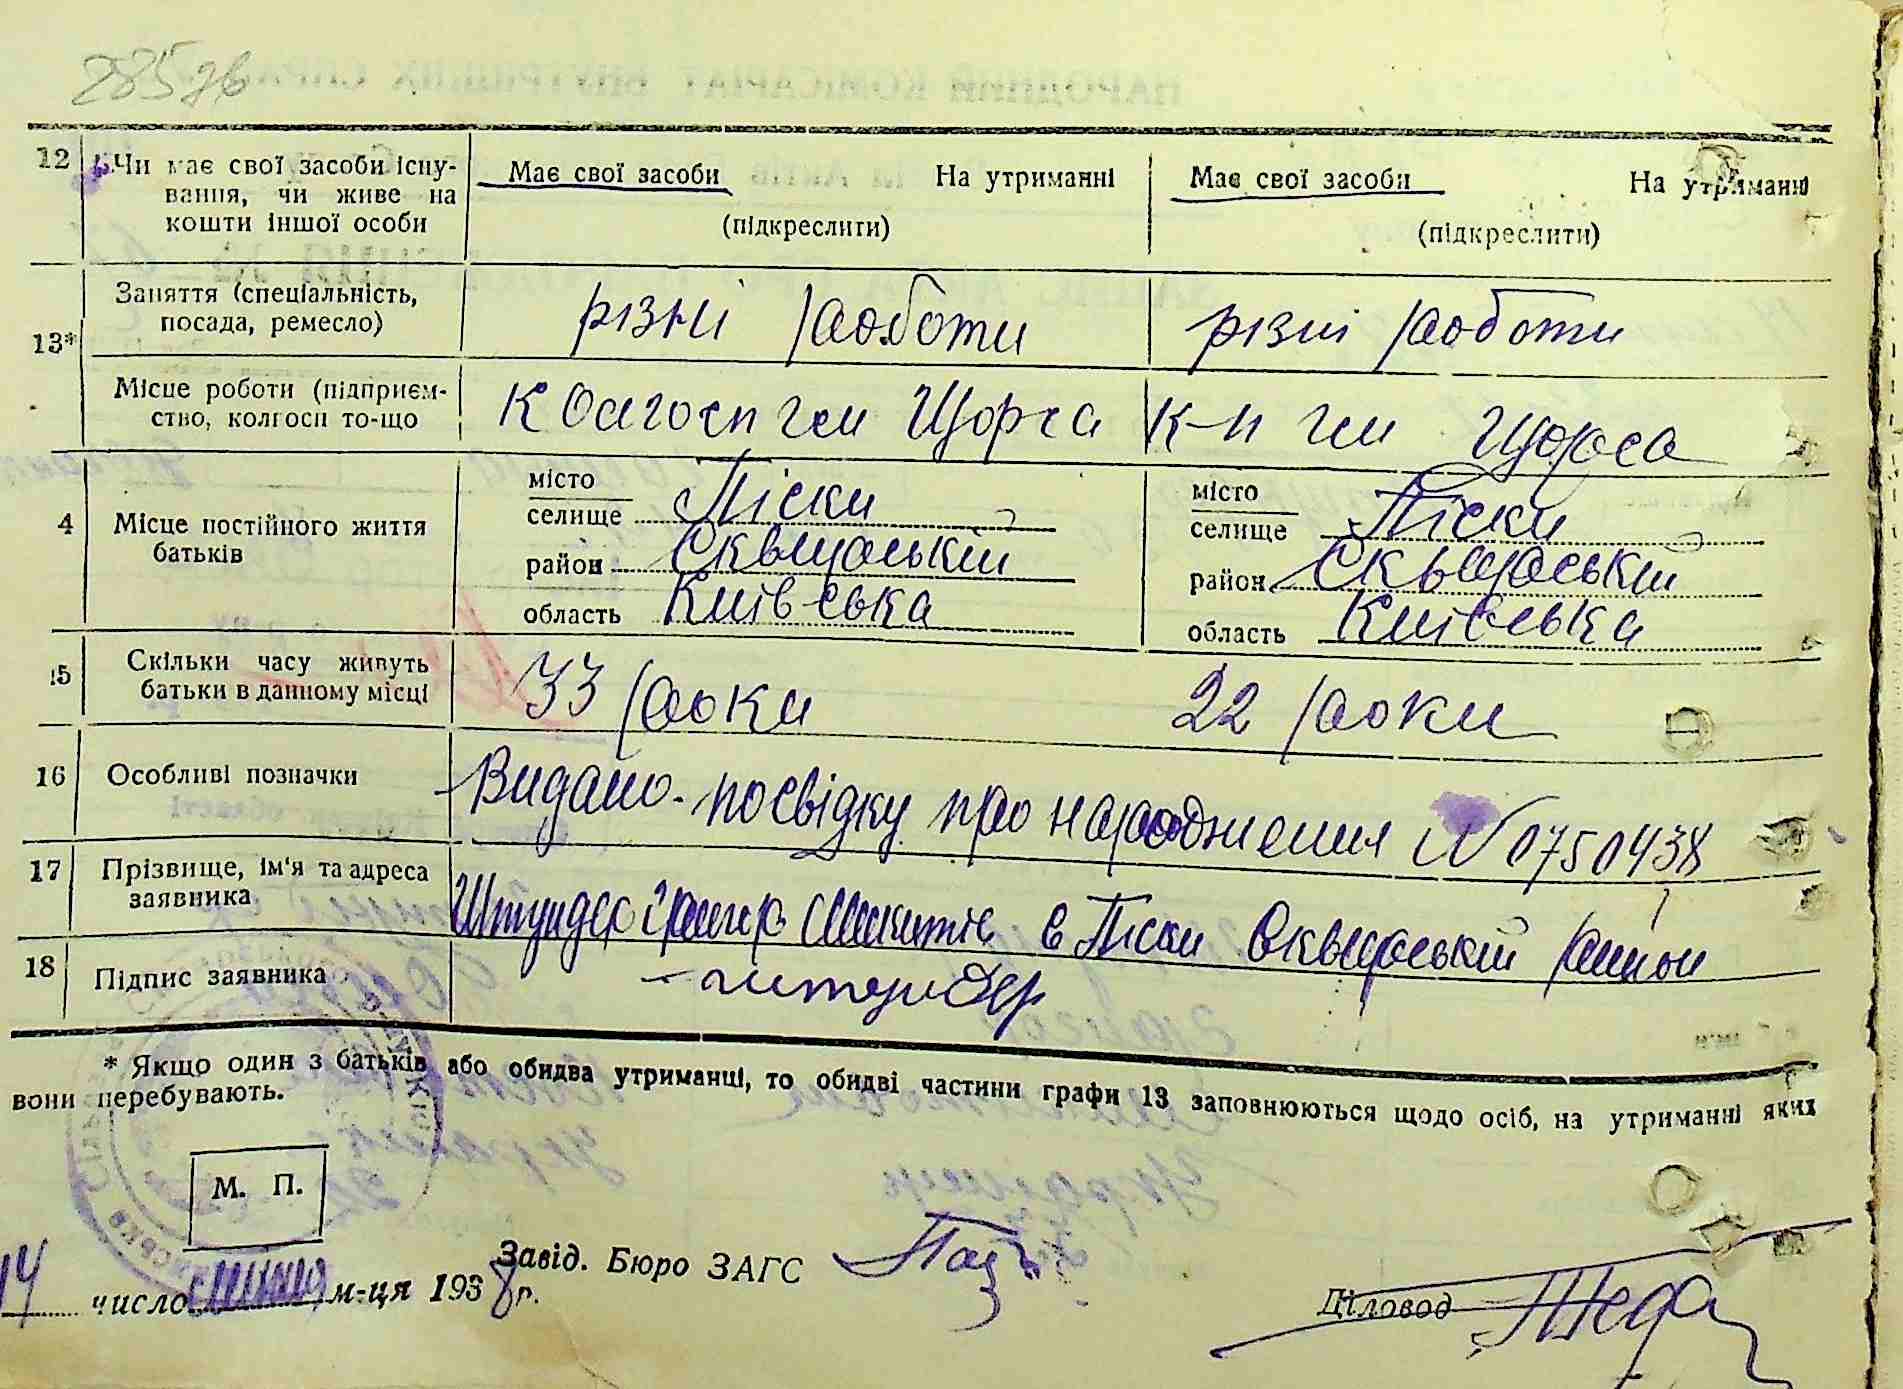 285 зв
12 Чи має свої засоби існу-
вання, чи живе на
кошти іншої особи
Має свої засоби На утриманні
(підкреслити)
Має свої засоби На утриманні
(підкреслити)
13*
Заняття (спеціальність,
посада, ремесло)
різні роботи різні роботи
Місце роботи (підприєм-
ство, колгосп то-що
Колгосп ім Щорса к-п ім Щорса
4 Місце постійного життя
батьків
місто
селище Піски
район Сквирській
область Київська
місто
селище Піски
район Сквирській
область Київська
15 Скільки часу живуть
батьки в данному місці
33 роки 22 роки
16 Особливі позначки
Видано посвідку про народження № 0750438
17 Прізвище, ім'я та адреса
заявника
Штундер в Піски Сквирській район
18 Підпис заявника
штундер
* Якщо один з батьків або обидва утриманці, то обидві частини графи 13 заповнюються щодо осіб, на утриманні яких
вони перебувають.
М. П.
14 число м-ця 1938 р.
Завід. Бюро ЗАГС
Діловод